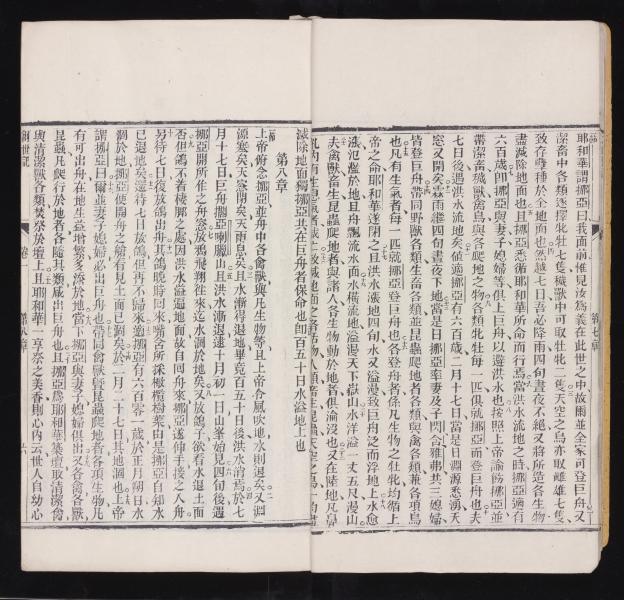 耶和華謂挪亞曰我面前惟見汝爲義在此世之中故爾並全家可登巨舟又
潔畜中各類逐擇牝牡七隻穢獸中可取牝牡二隻天空之鳥亦取雌雄七隻
致存孳種於全地面也然越七日吾必降雨四旬晝夜不絕又將所造各生物
盡滅除地面也且挪亞悉循耶和華所命而行焉當洪水流地之時挪亞適有
六百歲卽挪亞與妻子媳婦等俱上巨舟以避洪水也按照上帝諭飭挪亞並
帶潔畜穢獸禽鳥與各爬地之物各類牝牡每一匹俱就挪亞而登巨舟也夫
七日後遇洪水流地矣値適挪亞有六百歲二月十七日當是日淵源悉湧天
窓又開矣霖雨繼四旬晝夜下地當是日挪亞率妻及子閃含雅弗共三媳婦
皆登巨舟帶同野獸各類生畜各類並昆蟲爬地者各類與禽各類兼各項鳥
也凡有生氣者每一匹就挪亞登巨舟也各登舟者係凡生物之牡牝均循上
帝之命耶和華遂閉之且洪水漲地四旬水又溢漫致巨舟泛而浮地上水愈
漲氾濫於地且舟飄流水面水橫流地溢漫天下嶽山水洋溢一丈五尺漫山
夫禽獸畜生昆蟲爬地者與諸人各生物動於地皆俱淪沒也又在陸地凡鼻
滅除地面獨挪亞共在巨舟者保命也卽百五十日水溢地上也
第八章
上帝俯念挪亞並舟中各禽獸與凡生物等且上帝令風吹地水則退矣又淵
源塞矣天窓閉矣天雨息矣且水漸得退地畢竟百五十日後洪水消焉於七
月十七日巨舟擱亞喇臘山且洪水漸退逮十月初一日山峯始見四旬後遇
挪亞開所作之舟窓放鴉飛翔往來迄水涸於地矣又放鴿子欲看水退土面
否但鴿不着棲脚之處因洪水溢遍地面故自回舟來挪亞遂伸手接之入舟
另待七日後放鴿出舟其鴿晚時回來嘴含所採橄欖樹葉由是挪亞自知水
已退地矣還待七日放鴿但再不歸來適挪亞有六百零一歲於正月朔日水
涸於地挪亞便開舟之艙看見土面已涸矣於二月二十七日其地涸也上帝
謂挪亞曰爾並妻子媳婦必出巨舟也帶同禽獸曁昆蟲爬地者各項生物凡
有可出舟在地生益增繁多滋於地當下挪亞與妻子媳婦俱出又各禽各獸
昆蟲凡爬行於地者各隨其類咸出巨舟也且挪亞爲耶和華築壇取淸潔禽
與淸潔獸各類焚祭於壇上且耶和華一享祭之美香則心內云世人自幼心
創世記 卷一 第八章 六